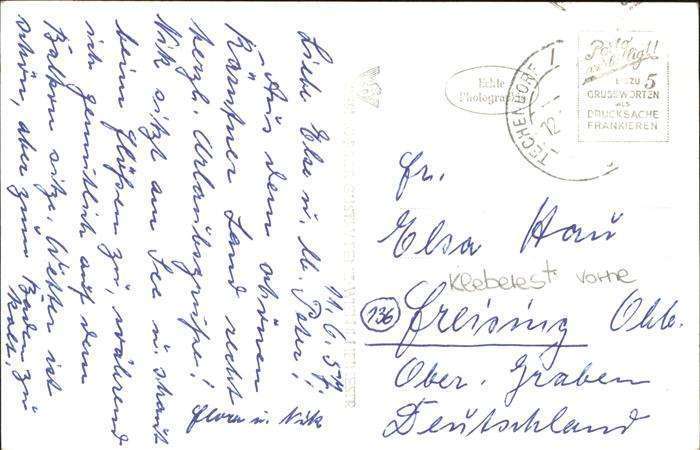 11. 6. 57.
Liebe Elsa u. lb. Peter!
Aus dem schönen
Kärntner Land recht
herzl. Urlaubsgrüße!
Nik sitzt am See u. schaut
beim Flößen zu, während
ich gemütlich auf dem
Balkon sitze. Wetter ist
schön, aber zum Baden zu
kalt.
Flora u. Nik
Echte
Photografie
TECHENDORF
12.
Post
BIS ZU 5
GRUSSWORTEN
ALS
DRUCKSACHE
FRANKIEREN
Fr.
Elsa Hau
Kleberest vorne
136 Freising Obb.
Ober. Graben
Deutschland